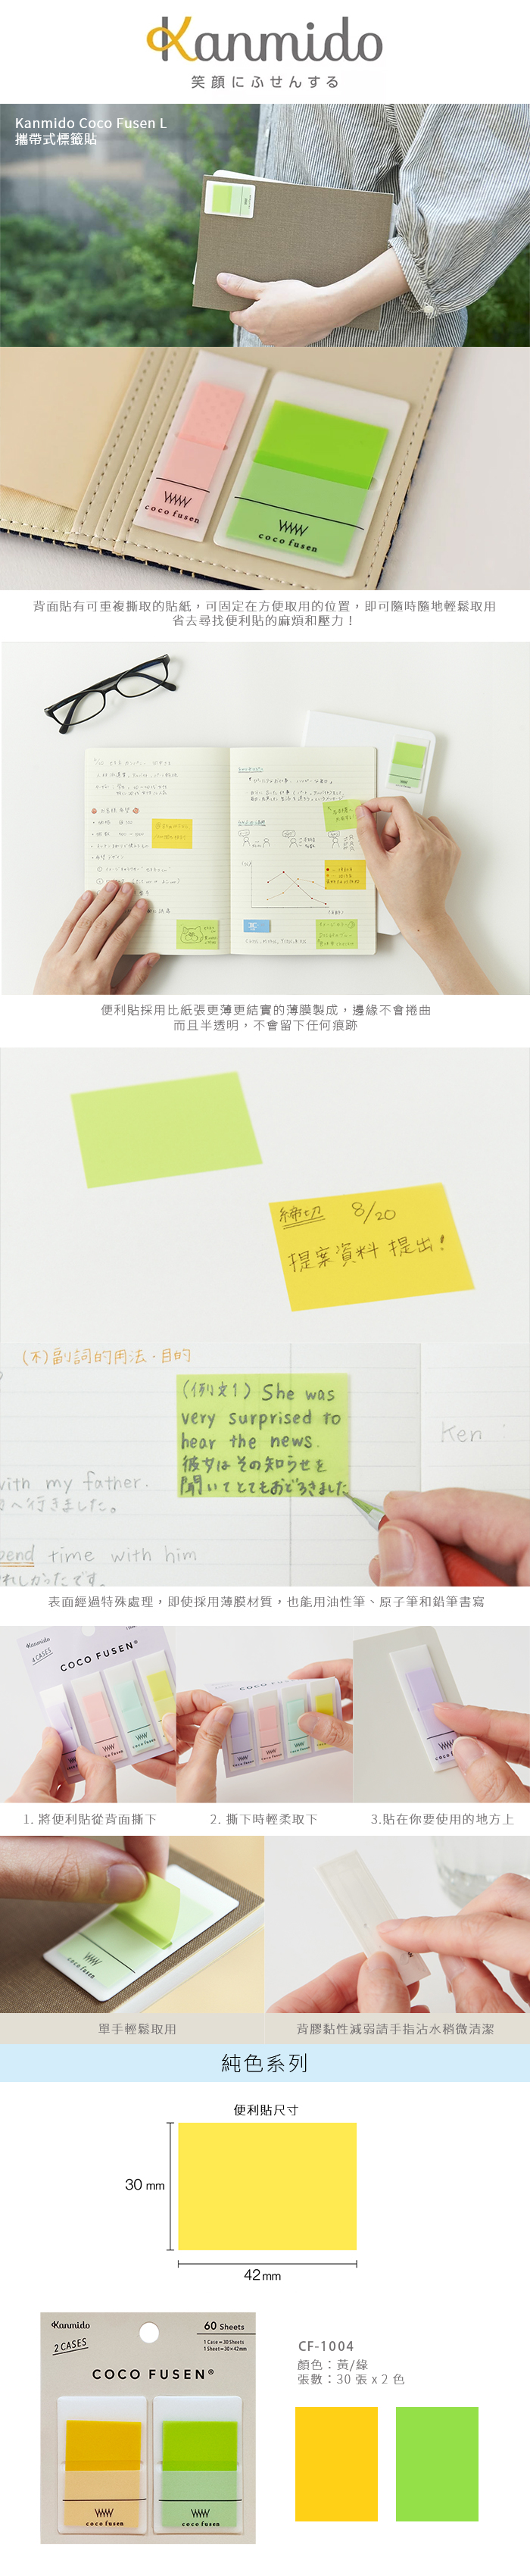 Kanmido
笑顔にふせんする
Kanmido Coco Fusen L
攜帶式標籤貼
coco fusen
coco fusen
背面貼有可重複撕取的貼紙，可固定在方便取用的位置，即可隨時隨地輕鬆取用
省去尋找便利貼的麻煩和壓力！
便利貼採用比紙張更薄更結實的薄膜製成，邊緣不會捲曲
而且半透明，不會留下任何痕跡
締切 8/20
提案資料 提出！
(不)副詞的用法・目的
(例文1) She was
very surprised to
hear the news.
彼女はその知らせを
聞いてとてもおどろきました
Ken
with my father.
へ行きました。
pend time with him
れしかったです。
表面經過特殊處理，即使採用薄膜材質，也能用油性筆、原子筆和鉛筆書寫
Kanmido
4 CASES
COCO FUSEN®
coco fusen
1. 將便利貼從背面撕下
2. 撕下時輕柔取下
3.貼在你要使用的地方上
coco fusen
單手輕鬆取用
背膠黏性減弱請手指沾水稍微清潔
純色系列
便利貼尺寸
30 mm
42mm
Kanmido
60 Sheets
2 CASES
1 Case=30 Sheets
1 Sheet=30×42mm
COCO FUSEN®
coco fusen
coco fusen
CF-1004
顏色：黃/綠
張數：30 張 x 2 色